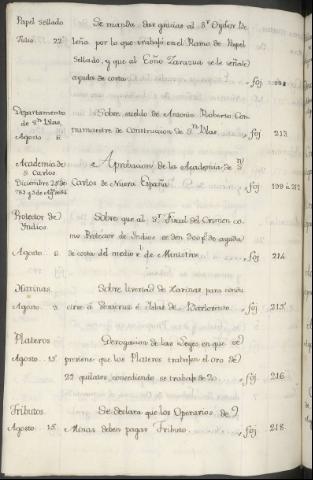 Papel sellado Se mandan dar gracias al Sr. Oydor
Julio 22 leña por lo que trabajó en el Ramo de Papel
Sellado, y que al Esño Zarazua se le señale
ayuda de costa foj
Departamento Sobre sueldo de Antonio Roberto Con
de Sn. Blas
Agosto 6 tramaestre de Construccion de Sn. Blas foj 213
Academia de Aprobacion de la Academia de Sn.
S. Carlos
Diciembre 25 de Carlos de Nueva España foj 199 á 212
783
Protector de Sobre que al Sr. Fiscal del Crimen co
Indios mo Protector de Indios se den de ayuda
Agosto 6 de costa del medio rl. de Ministros foj 214
Harinas Sobre livertad de Harinas para condu
Agosto 9 cirse á Veracruz é Islas de Barlovento foj 215
Plateros Derogacion de las Leyes en que se
Agosto 15 previene que los Plateros trabajen el oro de
22 quilates, concediendo se trabaje de 20 foj 216
Tributos Se declara que los Operarios de
Agosto 15 Minas deben pagar Tributo foj 218